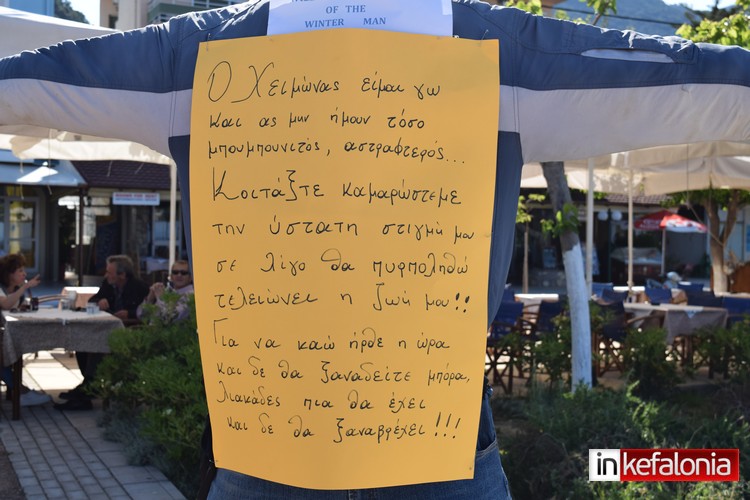 OF THE
WINTER MAN
Ο Χειμώνας είμαι γω
και ας μην ήμουν τόσο
μπουμπουνιτός, αστραφτερός...
Κοιτάξτε καμαρώστεμε
την ύστατη στιγμή μου
σε λίγο θα πυρποληθώ
τελειώνει η ζωή μου!!
Για να καώ ήρθε η ώρα
και δε θα ξαναδείτε μπόρα,
λιακάδες πια θα έχει
και δε θα ξαναβρέχει!!!
inkefalonia